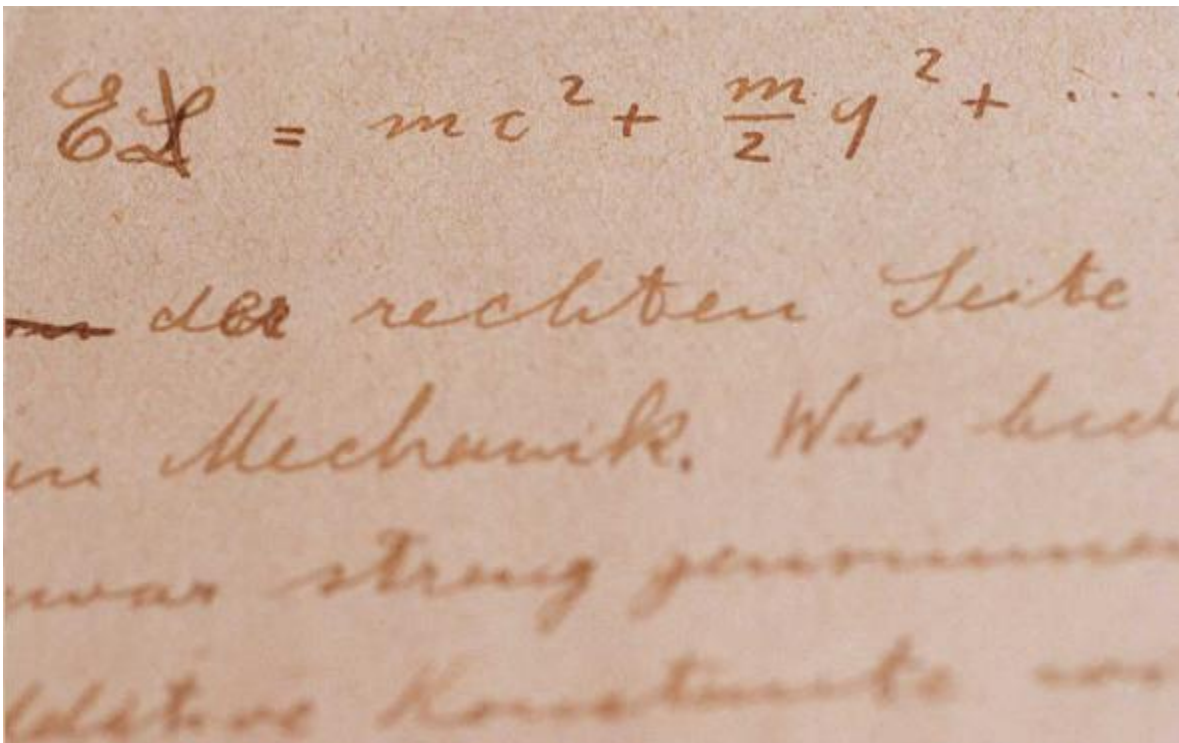 EL = mc² + m/2 q² + ....
der rechten Seite
Mechanik. Was
zwar streng genommen
additive Konstante